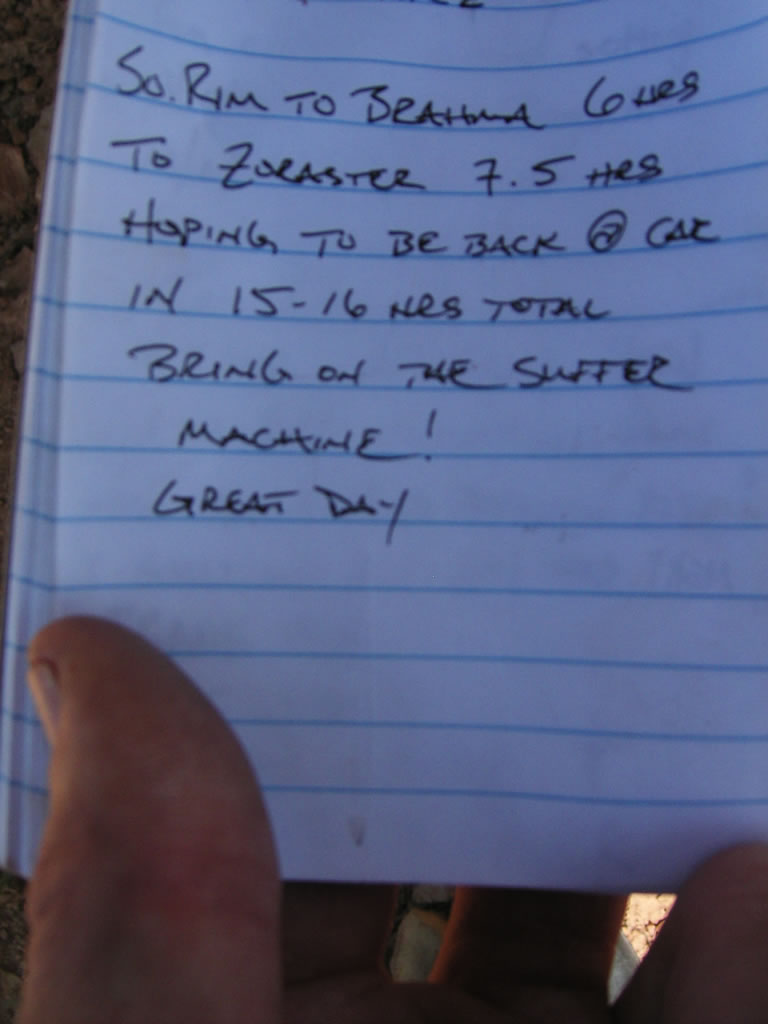 So. Rim to Brahma 6 hrs
To Zoraster 7.5 hrs
Hoping to be back @ car
in 15-16 hrs total
Bring on the suffer
machine!
Great day